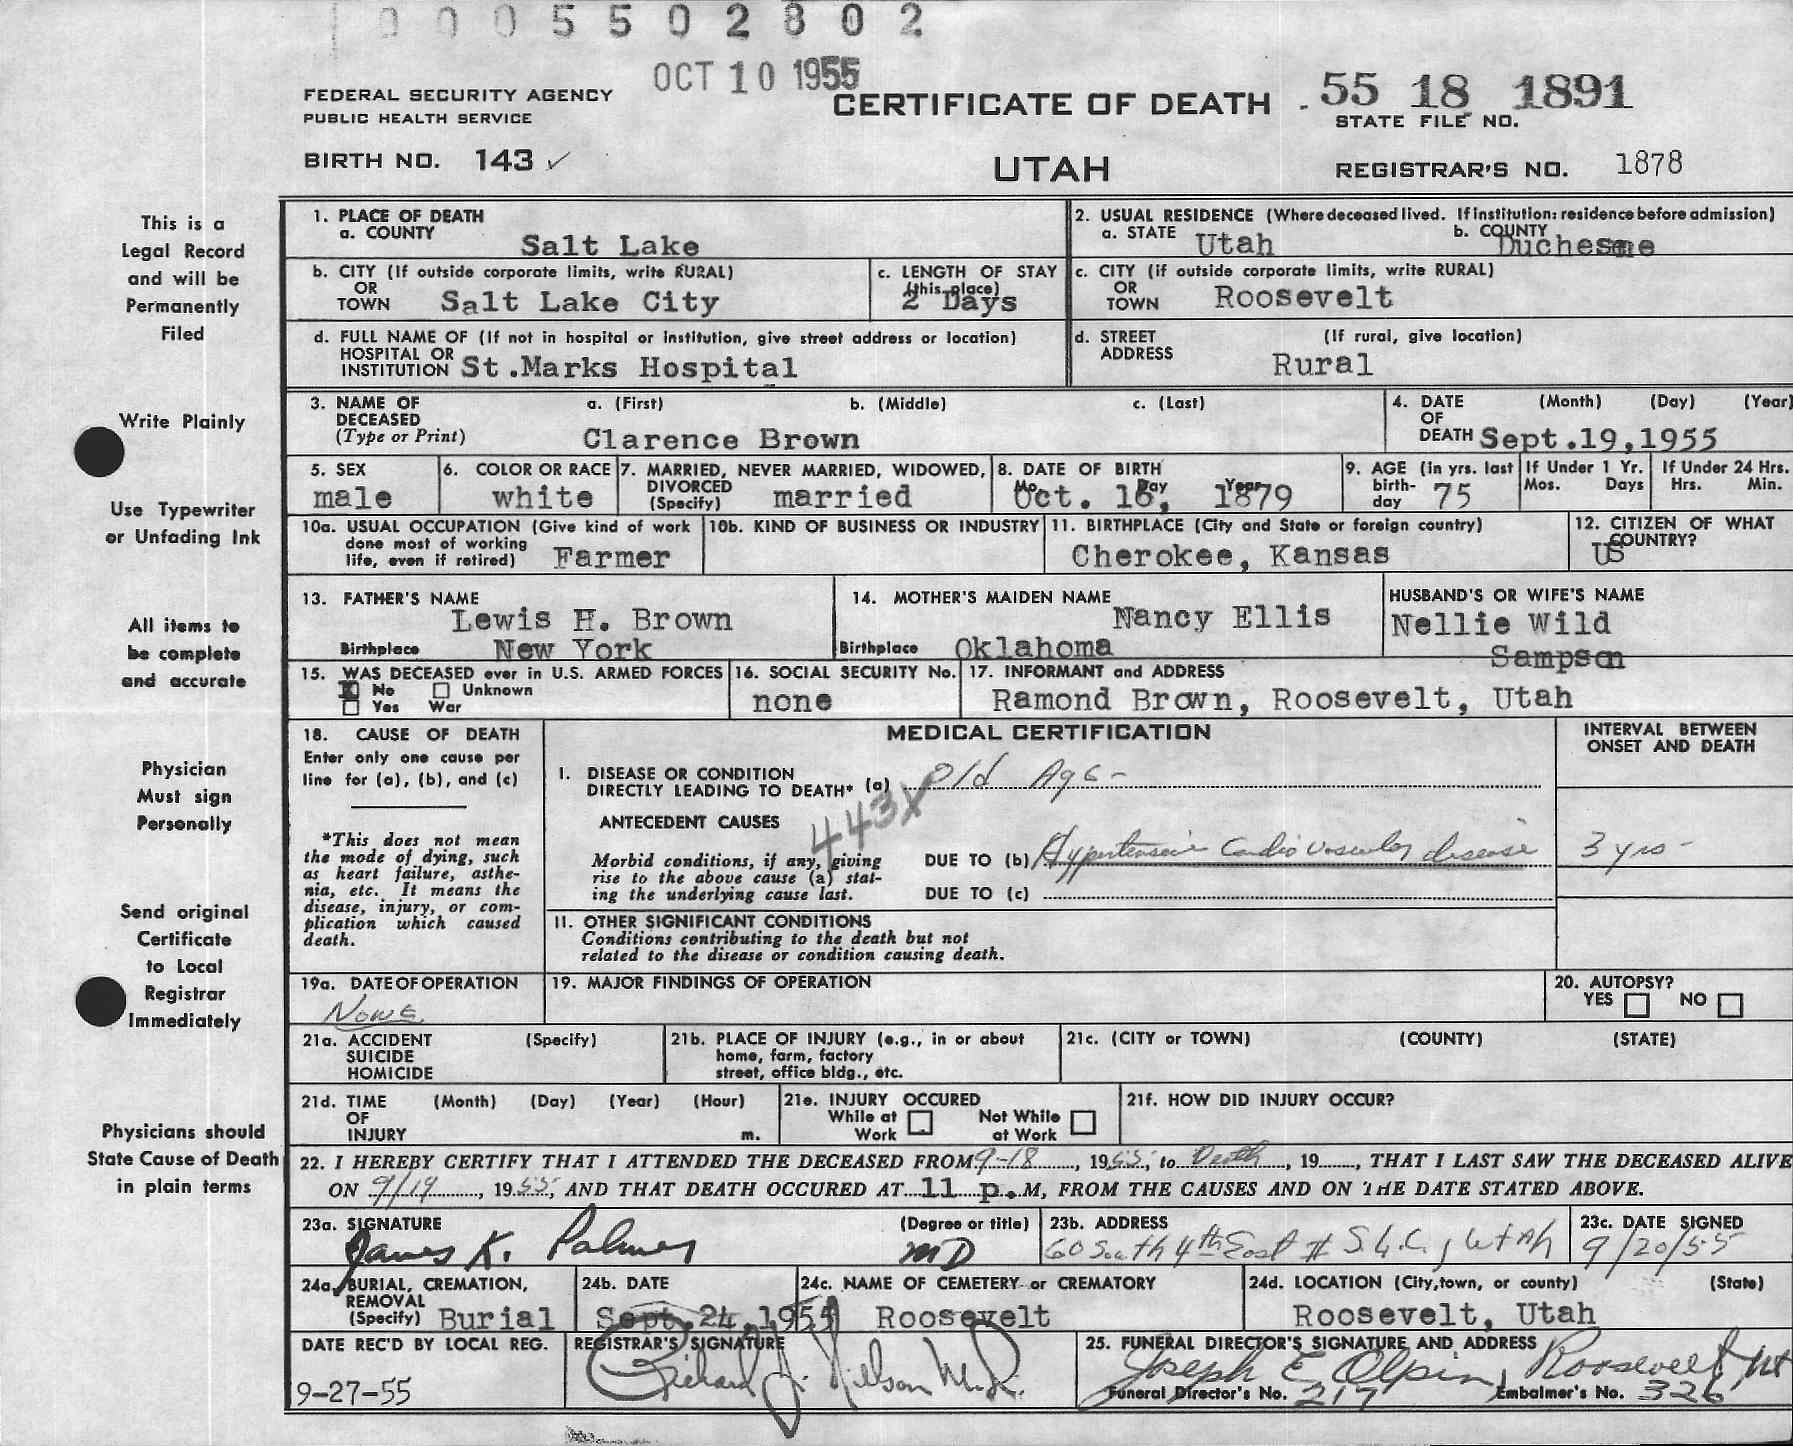 0005502802
OCT 10 1955
FEDERAL SECURITY AGENCY
PUBLIC HEALTH SERVICE
CERTIFICATE OF DEATH
55 18 1891
STATE FILE NO.
BIRTH NO. 143 ✓
UTAH
REGISTRAR'S NO. 1878
This is a
Legal Record
and will be
Permanently
Filed
Write Plainly
Use Typewriter
or Unfading Ink
All items to
be complete
and accurate
Physician
Must sign
Personally
Send original
Certificate
to Local
Registrar
Immediately
Physicians should
State Cause of Death
in plain terms
1. PLACE OF DEATH
a. COUNTY
Salt Lake
2. USUAL RESIDENCE (Where deceased lived. If institution: residence before admission)
a. STATE Utah
b. COUNTY Duchesne
b. CITY (If outside corporate limits, write RURAL)
OR
TOWN Salt Lake City
c. LENGTH OF STAY
(this place)
2 Days
c. CITY (if outside corporate limits, write RURAL)
OR
TOWN Roosevelt
d. FULL NAME OF (If not in hospital or institution, give street address or location)
HOSPITAL OR
INSTITUTION St.Marks Hospital
d. STREET (If rural, give location)
ADDRESS Rural
3. NAME OF a. (First) b. (Middle) c. (Last)
DECEASED
(Type or Print) Clarence Brown
4. DATE (Month) (Day) (Year)
OF
DEATH Sept.19,1955
5. SEX
male
6. COLOR OR RACE
white
7. MARRIED, NEVER MARRIED, WIDOWED,
DIVORCED
(Specify) married
8. DATE OF BIRTH
Mo. Day Year
Oct. 16, 1879
9. AGE (in yrs. last
birth-
day 75
If Under 1 Yr.
Mos. Days
If Under 24 Hrs.
Hrs. Min.
10a. USUAL OCCUPATION (Give kind of work
done most of working
life, even if retired) Farmer
10b. KIND OF BUSINESS OR INDUSTRY
11. BIRTHPLACE (City and State or foreign country)
Cherokee, Kansas
12. CITIZEN OF WHAT
COUNTRY?
US
13. FATHER'S NAME
Lewis H. Brown
Birthplace New York
14. MOTHER'S MAIDEN NAME
Nancy Ellis
Birthplace Oklahoma
HUSBAND'S OR WIFE'S NAME
Nellie Wild
Sampson
15. WAS DECEASED ever in U.S. ARMED FORCES
No Unknown
Yes War
16. SOCIAL SECURITY No.
none
17. INFORMANT and ADDRESS
Ramond Brown, Roosevelt, Utah
18. CAUSE OF DEATH
Enter only one cause per
line for (a), (b), and (c)
*This does not mean
the mode of dying, such
as heart failure, asthe-
nia, etc. It means the
disease, injury, or com-
plication which caused
death.
MEDICAL CERTIFICATION
INTERVAL BETWEEN
ONSET AND DEATH
I. DISEASE OR CONDITION
DIRECTLY LEADING TO DEATH* (a) Old Age -
443X
ANTECEDENT CAUSES
Morbid conditions, if any, giving
rise to the above cause (a) stat-
ing the underlying cause last.
DUE TO (b) Hypertensive Cardiovascular disease 3 yrs -
DUE TO (c)
II. OTHER SIGNIFICANT CONDITIONS
Conditions contributing to the death but not
related to the disease or condition causing death.
19a. DATE OF OPERATION
None
19. MAJOR FINDINGS OF OPERATION
20. AUTOPSY?
YES NO
21a. ACCIDENT (Specify)
SUICIDE
HOMICIDE
21b. PLACE OF INJURY (e.g., in or about
home, farm, factory
street, office bldg., etc.
21c. (CITY or TOWN) (COUNTY) (STATE)
21d. TIME (Month) (Day) (Year) (Hour)
OF
INJURY m.
21e. INJURY OCCURED
While at Work
Not While at Work
21f. HOW DID INJURY OCCUR?
22. I HEREBY CERTIFY THAT I ATTENDED THE DECEASED FROM 9-18, 1955, to Death, 19......, THAT I LAST SAW THE DECEASED ALIVE
ON 9/19, 1955, AND THAT DEATH OCCURED AT 11 p.M, FROM THE CAUSES AND ON THE DATE STATED ABOVE.
23a. SIGNATURE (Degree or title)
James K. Palmer MD
23b. ADDRESS
60 South 4th East # S.L.C., Utah
23c. DATE SIGNED
9/20/55
24a. BURIAL, CREMATION,
REMOVAL
(Specify) Burial
24b. DATE
Sept.24,1955
24c. NAME OF CEMETERY or CREMATORY
Roosevelt
24d. LOCATION (City,town, or county) (State)
Roosevelt, Utah
DATE REC'D BY LOCAL REG.
9-27-55
REGISTRAR'S SIGNATURE
Richard J. Nilson M.D.
25. FUNERAL DIRECTOR'S SIGNATURE AND ADDRESS
Joseph E Olpin, Roosevelt, Ut
Funeral Director's No. 217 Embalmer's No. 326